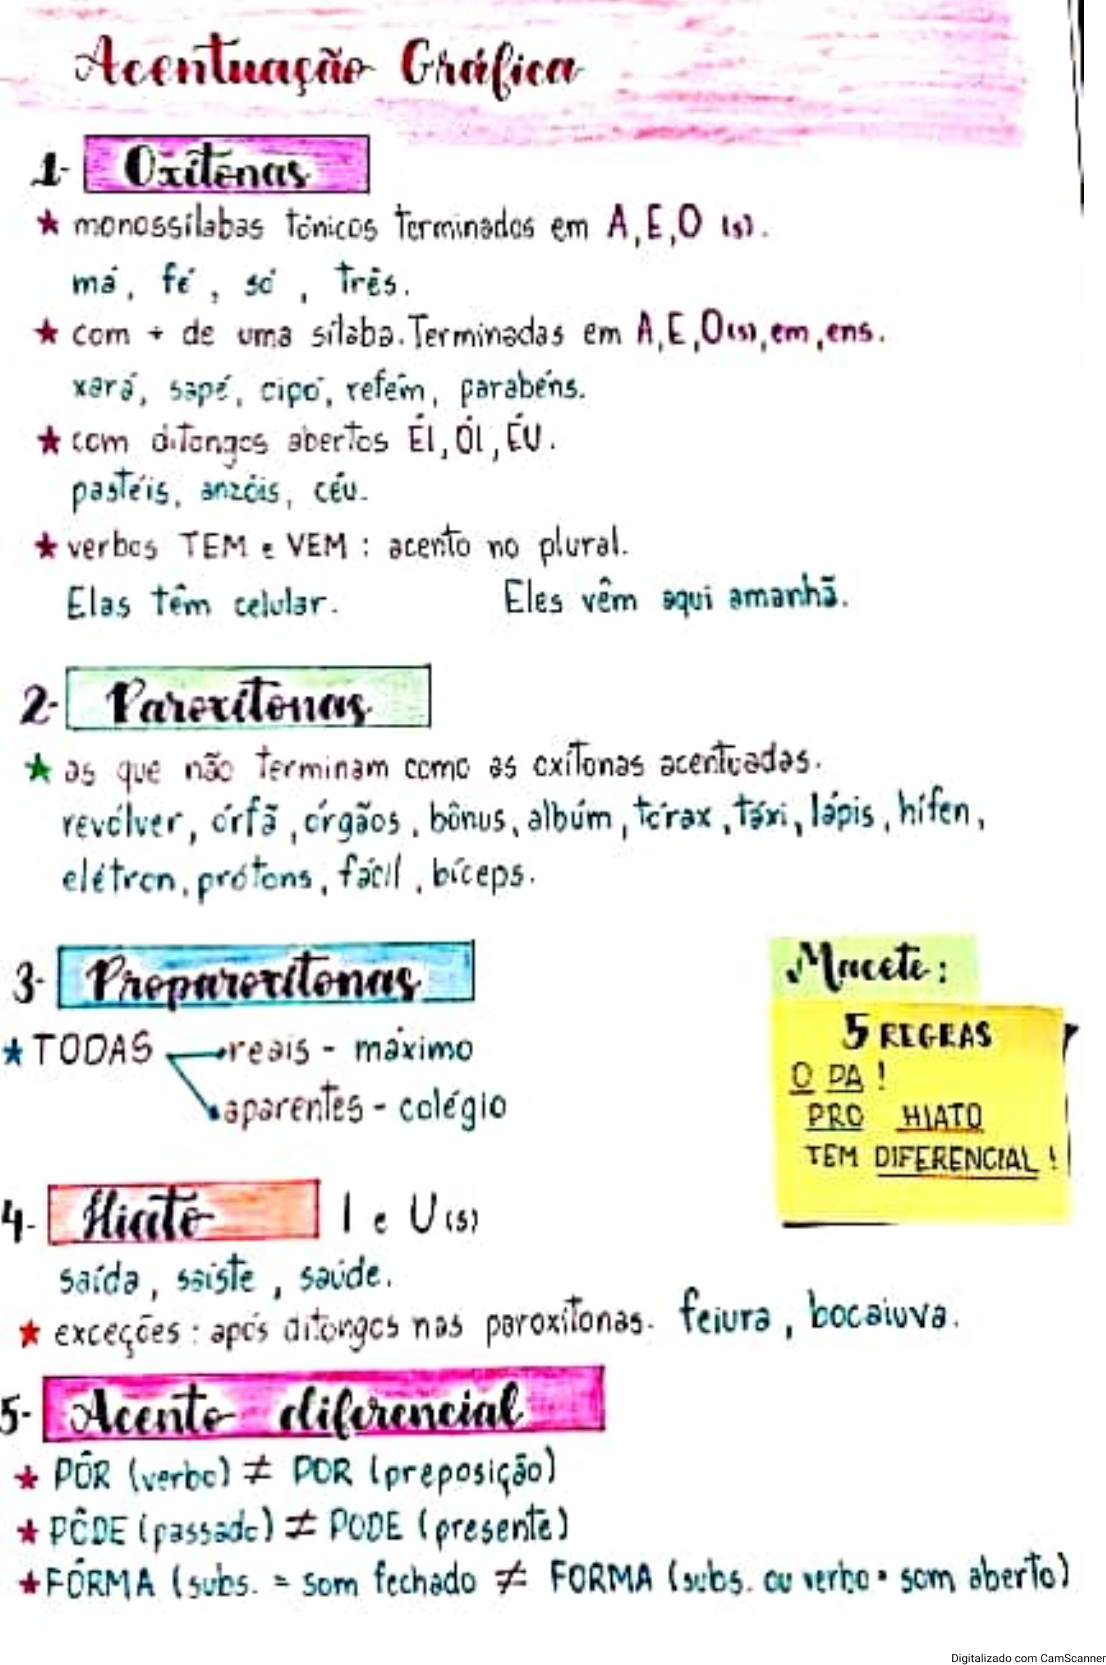 Acentuação Gráfica
1- Oxítonas
★ monossílabas tônicos terminados em A, E, O (s).
má, fé, só, três.
★ com + de uma sílaba. Terminadas em A, E, O(s), em, ens.
xará, sapé, cipó, refém, parabéns.
★ com ditongos abertos ÉI, ÓI, ÉU.
pastéis, anzóis, céu.
★ verbos TEM e VEM : acento no plural.
Elas têm celular. Eles vêm aqui amanhã.
2- Paroxítonas
★ as que não terminam como as oxítonas acentuadas.
revólver, órfã, órgãos, bônus, albúm, tórax, táxi, lápis, hífen,
elétron, prótons, fácil, bíceps.
3- Proparoxítonas
★ TODAS reais - máximo
aparentes - colégio
Macete:
5 REGRAS
O PA !
PRO HIATO
TEM DIFERENCIAL !
4- Hiato I e U (s)
saída, saíste, saúde.
★ exceções : após ditongos nas paroxítonas. feiura, bocaiuva.
5- Acento diferencial
★ PÔR (verbo) ≠ POR (preposição)
★ PÔDE (passado) ≠ PODE (presente)
★ FÔRMA (subs. = som fechado ≠ FORMA (subs. ou verbo = som aberto)
Digitalizado com CamScanner